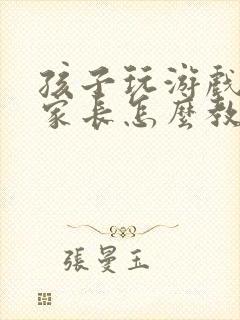 孩子玩游戲
家長怎麼教
張曼玉